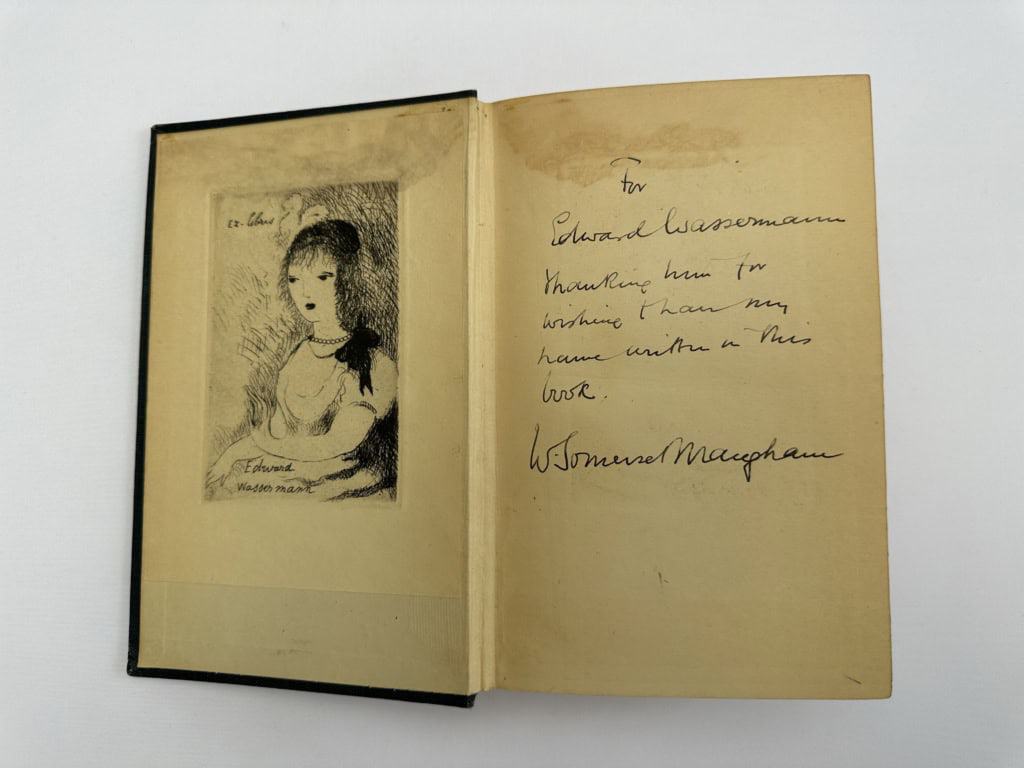 Ex-libris
Edward
Wassermann
For
Edward Wassermann
thanking him for
wishing to have my
name written in this
book.
W. Somerset Maugham